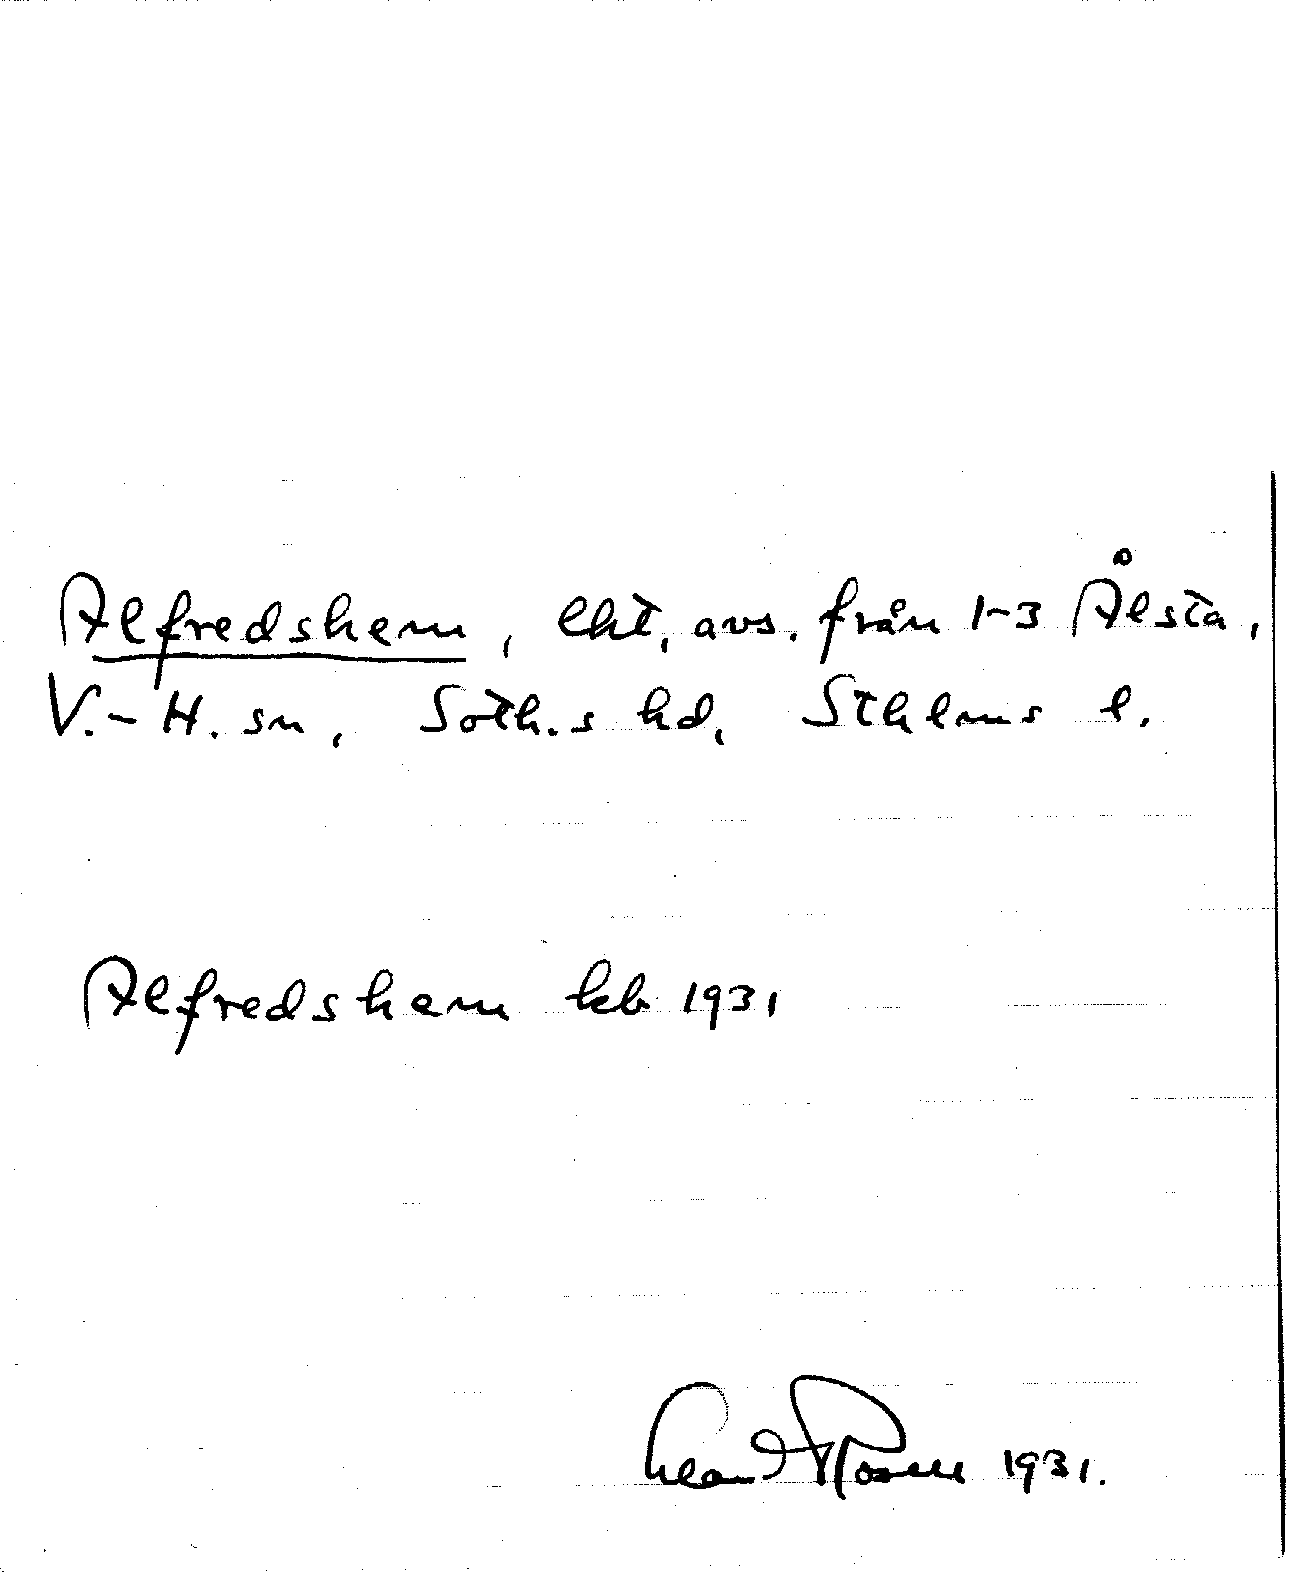 Alfredshem, lht, avs. från 1-3 Ålsta,
V.-H. sn, Soth.s hd, Sthlms l.
Alfredshem kb 1931
1931.